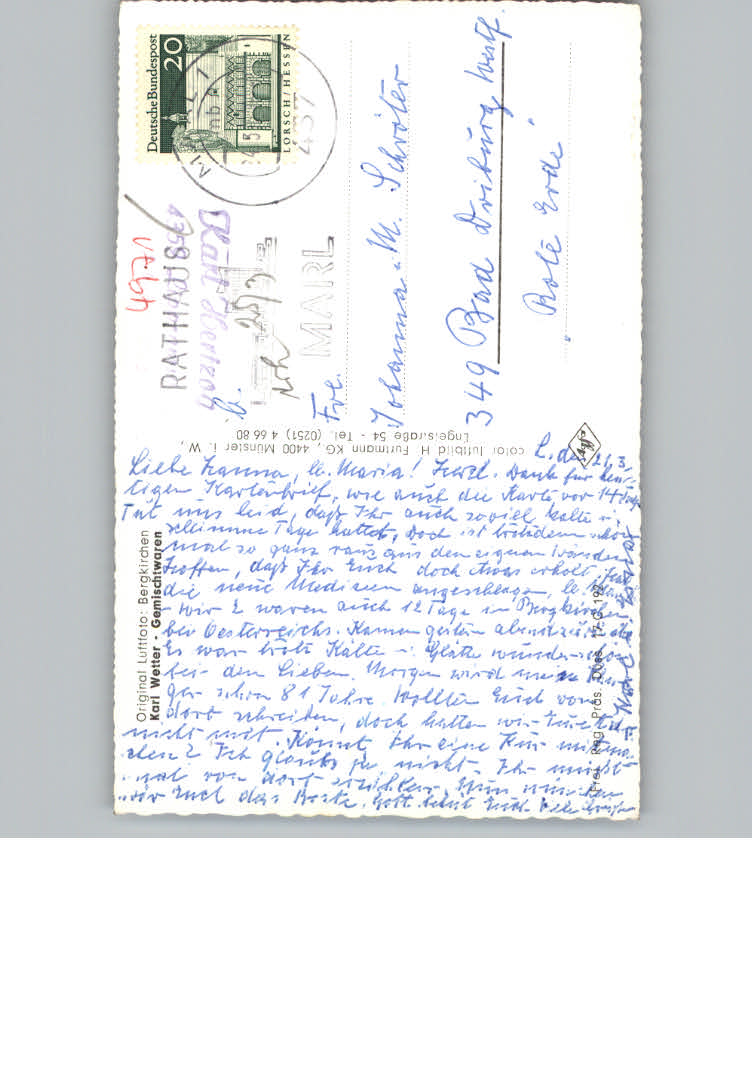 Deutsche Bundespost
20
LORSCH/HESSEN
437
4971
RATHAUS
MARL
Frl.
Johanna u. M. Schröter
349 Bad Driburg Westf.
"Rote Erde"
color luftbild H. Furtmann KG, 4400 Münster i. W.,
Engelstraße 54 - Tel. (0251) 4 66 80
Original Luftfoto: Bergkirchen
Karl Wetter - Gemischtwaren
Frei. Reg. Präs. Düss.
L. den 21.3.
Liebe Hanna, lb. Maria! Herzl. Dank für heu-
tigen Kartenbrief, wie auch die Karte vor 14 Tage
Tut uns leid, daß Ihr auch soviel kalte u.
schlimme Tage hattet, doch ist trotzdem schon
mal so ganz raus aus den eignen Wänden
Hoffen, daß Ihr Euch doch etwas erholt,
die neue Medizin angeschlagen, lb.
- Wir 2 waren auch 12 Tage in Bergkirchen
bei Oesterreichs. Kamen gestern abend zurück
Es war trotz Kälte u. Glätte wunderschön
bei den Lieben. Morgen wird
schon 81 Jahre. Wollten Euch von
dort schreiben, doch hatten wir
nicht mit. Könnt Ihr eine Kur mitma-
chen? Ich glaub's ja nicht. Ihr müßt
mal von dort erzählen. Nun wünschen
wir Euch das Beste. Gott behüt Euch. Viele Grüße